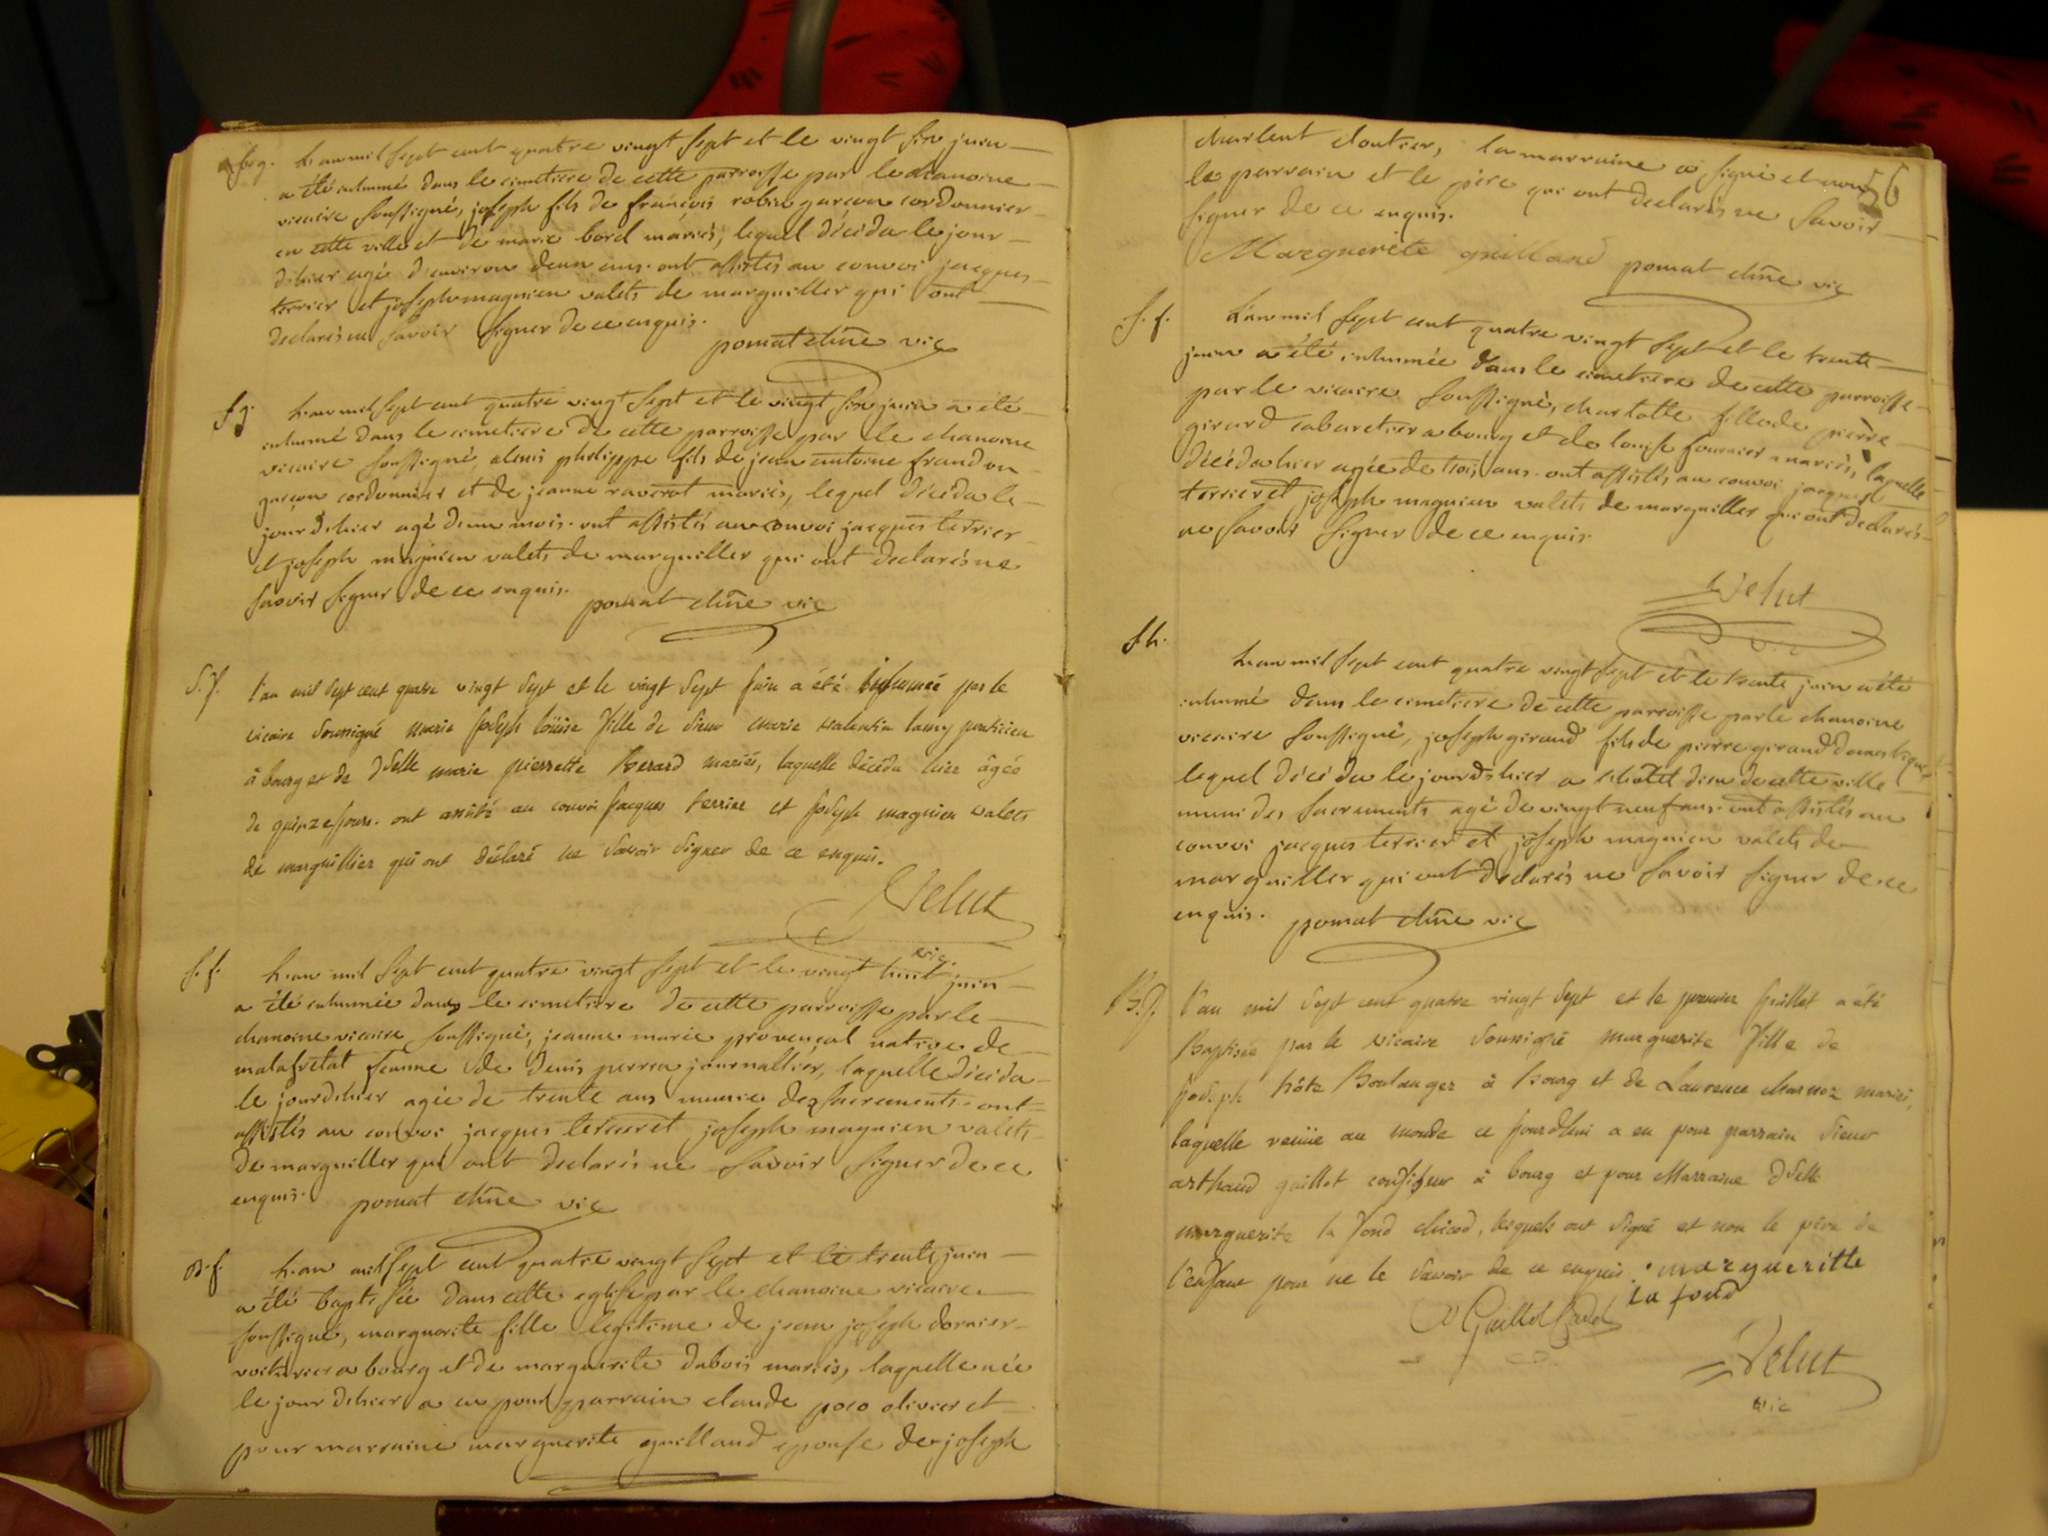 s. g. L'an mil sept cent quatre vingt sept et le vingt six juin
a été inhumé dans le cimetiere de cette parroisse par le chanoine
vicaire soussigné, joseph fils de francois robin garcon cordonnier
en cette ville et de marie borel mariés, lequel décéda le jour
d'hier agé d'environ deux ans. ont assistés au convoi jacques
terrier et joseph magnien valets de marguiller qui ont
declarés ne savoir signer de ce enquis.
pomat chne vic
s g. L'an mil sept cent quatre vingt sept et le vingt six juin a été
inhumé dans le cimetiere de cette parroisse par le chanoine
vicaire soussigné, alexis philippe fils de jean antoine frandon
garcon cordonnier et de jeanne raverat mariés, lequel décéda le
jour d'hier agé d'un mois. ont assistés au convoi jacques terrier
et joseph magnien valets de marguiller qui ont declarés ne
savoir signer de ce enquis.
pomat chne vic
s. f. l'an mil sept cent quatre vingt sept et le vingt sept juin a été inhumée par le
vicaire soussigné marie joseph loüise fille de sieur marie valentin lamy praticien
à bourg et de dselle marie pierrette Berard mariés, laquelle décéda hier âgée
de quinze jours. ont assisté au convoi jacques terrier et joseph magnien valets
de marguillier qui ont déclaré ne savoir signer de ce enquis.
Velut
vic.
s. f. L'an mil sept cent quatre vingt sept et le vingt huit juin
a été inhumée dans le cimetiere de cette parroisse par le
chanoine vicaire soussigné, jeanne marie provençal native de
malafretat femme de denis perron journallier, laquelle décéda
le jour d'hier agée de trente ans munie des sacrements. ont
assistés au convoi jacques terrier et joseph magnien valets
de marguiller qui ont declarés ne savoir signer de ce
enquis. pomat chne vic
B. f. L'an mil sept cent quatre vingt sept et le trente juin
a été baptisée dans cette eglise par le chanoine vicaire
soussigné, marguerite fille legitime de jean joseph dornier
voiturier a bourg et de marguerite dubois mariés, laquelle née
le jour d'hier a eu pour parrain claude poco olivier et
pour marraine marguerite guilland epouse de joseph
56
charlent cloutier, la marraine a signé et non
le parrain et le père qui ont declarés ne savoir
signer de ce enquis.
Marguerite guilland pomat chne vic
s. f. L'an mil sept cent quatre vingt sept et le trente
juin a été inhumée dans le cimetiere de cette parroisse
par le vicaire soussigné, charlotte fille de pierre
girard cabaretier a bourg et de louise fournier mariés, laquelle
décéda hier agée de trois ans. ont assistés au convoi jacques
terrier et joseph magnien valets de marguiller qui ont declarés
ne savoir signer de ce enquis.
Velut
vic
s h. L'an mil sept cent quatre vingt sept et le trente juin a été
inhumé dans le cimetiere de cette parroisse par le chanoine
vicaire soussigné, joseph giraud fils de pierre giraud domestique,
lequel décéda le jour d'hier a l'hôtel dieu de cette ville
muni des sacrements agé de vingt neuf ans. ont assistés au
convoi jacques terrier et joseph magnien valets de
marguiller qui ont declarés ne savoir signer de ce
enquis. pomat chne vic
B. f. l'an mil sept cent quatre vingt sept et le premier juillet a été
Baptisée par le vicaire soussigné marguerite fille de
joseph hôte Boulanger à Bourg et de Laurence Marnoz mariés,
laquelle venüe au monde ce jourd'hui a eu pour parrain sieur
arthaud guillot confiseur à bourg et pour Marraine dselle
marguerite la fond chicod, lesquels ont signé et non le père de
l'enfant pour ne le savoir de ce enquis. margueritte
la fond
Guillot Cadet
Velut
vic